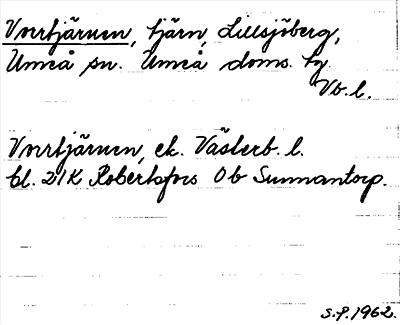 Vorrtjärnen, tjärn, Lillsjöberg,
Umeå sn. Umeå doms. tg.
Vb. l.
Vorrtjärnen, ek. Västerb. l.
bl. 21K Robertsfors 0b Sunnantorp.
S.P. 1962.